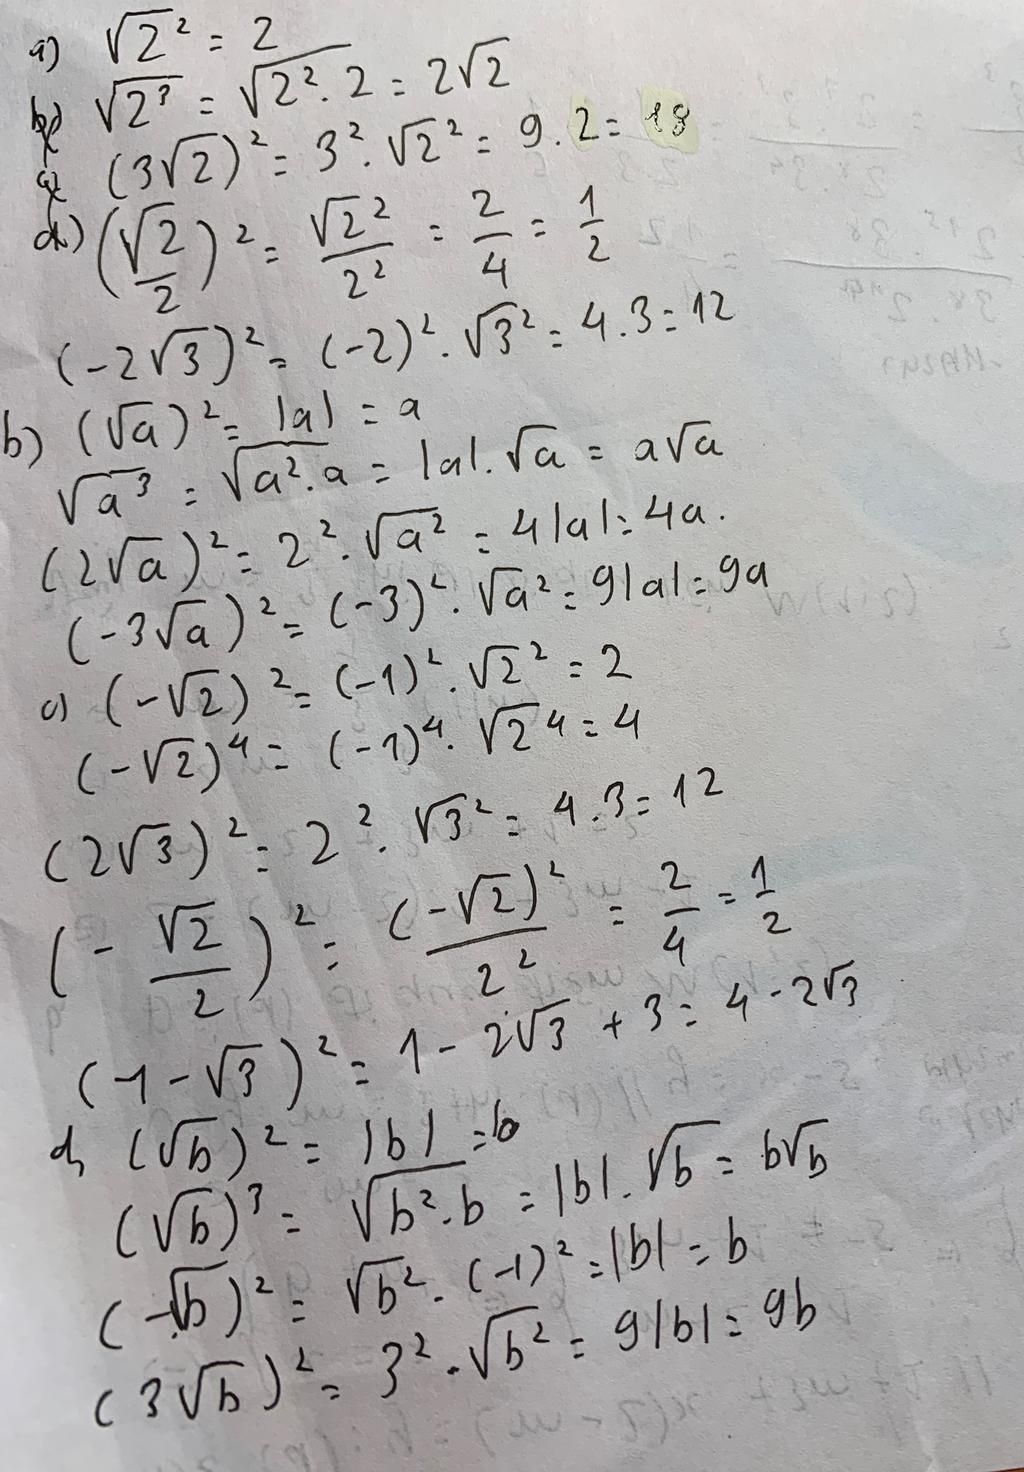 a) √2² = 2
√2³ = √2².2 = 2√2
(3√2)² = 3².√2² = 9.2 = 18
d) (√2/2)² = √2²/2² = 2/4 = 1/2
(-2√3)² = (-2)².√3² = 4.3 = 12
b) (√a)² = |a| = a
√a³ = √a².a = |a|.√a = a√a
(2√a)² = 2².√a² = 4|a| = 4a.
(-3√a)² = (-3)².√a² = 9|a| = 9a
c) (-√2)² = (-1)².√2² = 2
(-√2)⁴ = (-1)⁴.√2⁴ = 4
(2√3)² = 2².√3² = 4.3 = 12
(-√2/2)² = (-√2)²/2² = 2/4 = 1/2
(-1-√3)² = 1 - 2√3 + 3 = 4 - 2√3
d, (√b)² = |b| = b
(√b)³ = √b².b = |b|.√b = b√b
(-√b)² = √b².(-1)² = |b| = b
(3√b)² = 3².√b² = 9|b| = 9b